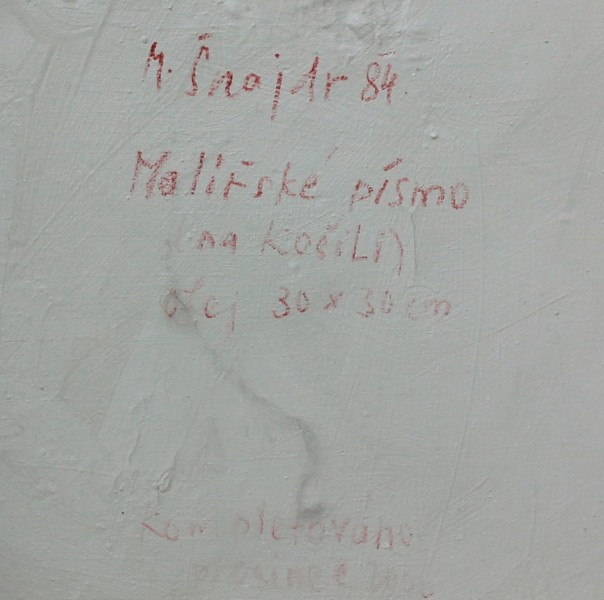 M. Šnajdr 84
Malířské písmo
(na Kočili)
olej 30 x 30 cm
Kompletováno
prosinec